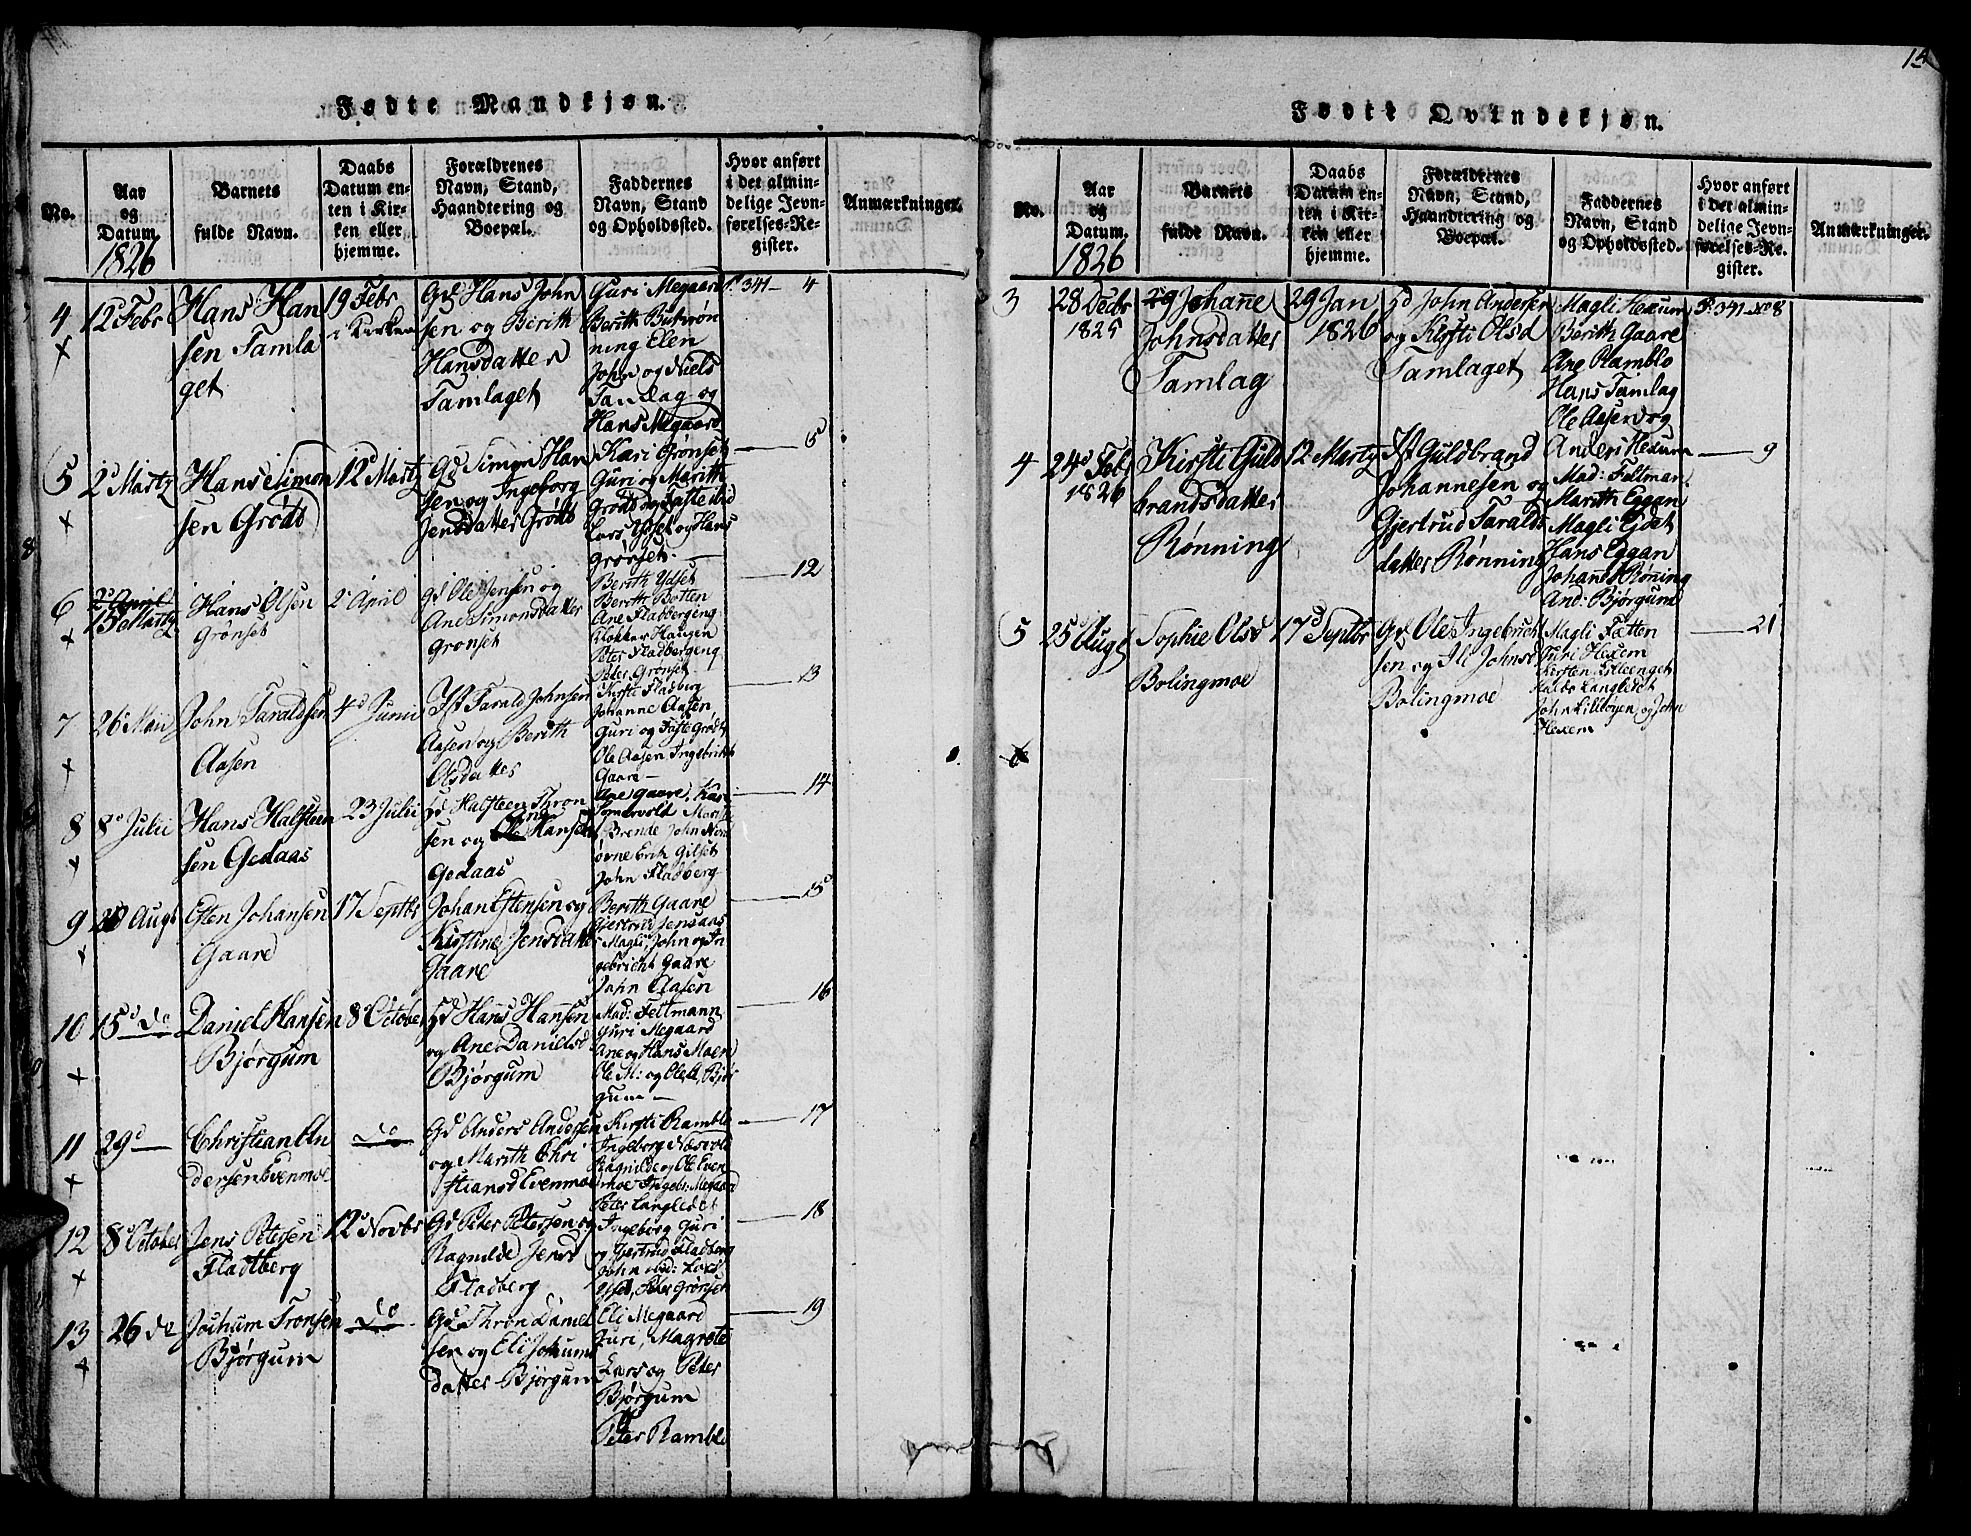 15
Fødte Mandkjøn.
No.
Aar
og
Datum.
1826
Barnets
fulde Navn.
Daabs
Datum en-
ten i Kir-
ken eller
hjemme.
Forældrenes
Navn, Stand,
Haandtering og
Boepæl.
Faddernes
Navn, Stand
og Opholdssted.
Hvor anført
i det almin-
delige Jevn-
førelses-Re-
gister.
Anmærkninger.
4
12 Febr
Hans Han
sen Tamla
get
19 Febr
i Kirken
Gd Hans John
sen og Berith
Hansdatter
Tamlaget
Guri Megaard
Berith Bukrøn
ning Elen
John og Niels
Tamlag og
Hans Megaard
P. 341 - 4
5
2d Martz
Hans Simon
sen Grødt
12d Martz
Gd Simon Han
sen og Ingeborg
Jensdatter Grødt
Kari Grønset
Guri og Marith
Grødt og
Lars Ydset og Hans
Grønset
5
6
2d April
15 Martz
Hans Olsen
Grønset
2d April
Gd Ole Jensen og
Ane Simonsdatter
Grønset
Berith Ydset
Berith Botten
Ane Fladbergeng
Haugen
Peter Fladbergeng
Peter Grønset
12
7
26 Maii
John Taraldsen
Aasen
4d Junii
Taralf Johnsen
Aasen og Berith
Olsdatter
Kirsti Fladberg
Johanne Aasen
Guri og Grødt
Ole Aasen Ingebrikt
Gaare
13
8
8d Julii
Hans Halfsteen
sen Gedaas
23 Julii
Gd Halfsteen Thron
sen og Ane Hansd
Gedaas
Ane Gaare, Kari
Brende John
Erik Gilset
John Fladberg
14
9
20 Augt
Esten Johansen
Gaare
17 Septbr
Johan Estensen og
Kirstine Jensdatter
Gaare
Berith Gaare
Gjertrud Jensaas
Magli, John og In
gebricht Gaare
John Aasen
15
10
15d do
Daniel Hansen
Bjørgum
8d October
Gd Hans Hansen
og Ane Danielsd
Bjørgum
Mad: Feltmann
Guri Megaard
Ane og Hans Moen
Ole M: og Ole Bjør
gum
16
11
29d
Christian An
dersen Evenmoe
do
Gd Anders Andersen
og Marith Chri
stiansd Evenmoe
Kirsti Ramblo
Ingeborg Næsvold
Ragnilde og Ole Even
moe Ingebr: Megaard
Peter Langledet
17
12
8d October
Jens Petersen
Fladberg
12d Novbr
Gd Peter Petersen og
Ragnilde Jensd
Fladberg
Ingeborg Guri
og Gjertrud Fladberg
John ibid: Lars
Ydset, Peter Grønset
18
13
26 do
Jochum Tronsen
Bjørgum
do
Gd Thron Daniel
sen og Eli Jochums
datter Bjørgum
Eli Megaard
Guri, Magrete
Lars og Peter
Bjørgum
Peter Ramblo
19
Fødte Qvindekjøn.
No.
Aar
og
Datum.
1826
Barnets
fulde Navn.
Daabs
Datum en-
ten i Kir-
ken eller
hjemme.
Forældrenes
Navn, Stand,
Haandtering og
Boepæl.
Faddernes
Navn, Stand
og Opholdssted.
Hvor anført
i det almin-
delige Jevn-
førelses-Re-
gister.
Anmærkninger.
3
28 Decbr
1825
Johanne
Johnsdatter
Tamlag
29 Jan
1826
Gd John Andersen
og Kirsti Olsd
Tamlaget
Magli Hexum
Berith Gaare
Ane Ramblo
Hans Tamlag
Ole Aasen og
P: 341 No 8
4
24d Feb
1826
Kirsti Guld
brandsdatter
Rønning
12 Martz
Guldbrand
Johannesen og
Gjertrud Taralds
datter Rønning
Anders Hexum
Mad: Feltman
Marith Eggan
Magli Ejdet
Hans Eggan
Johan Røning
And: Bjørgum
9
5
25d Augt
Sophie Olsd
Bolingmoe
17d Septbr
Gd Ole Ingebricht
sen og Ili Johnsd
Bolingmoe
Magli Fætten
Guri Hexem
Kirsten
Langledet
John Lilløyen og John
Hexem
21